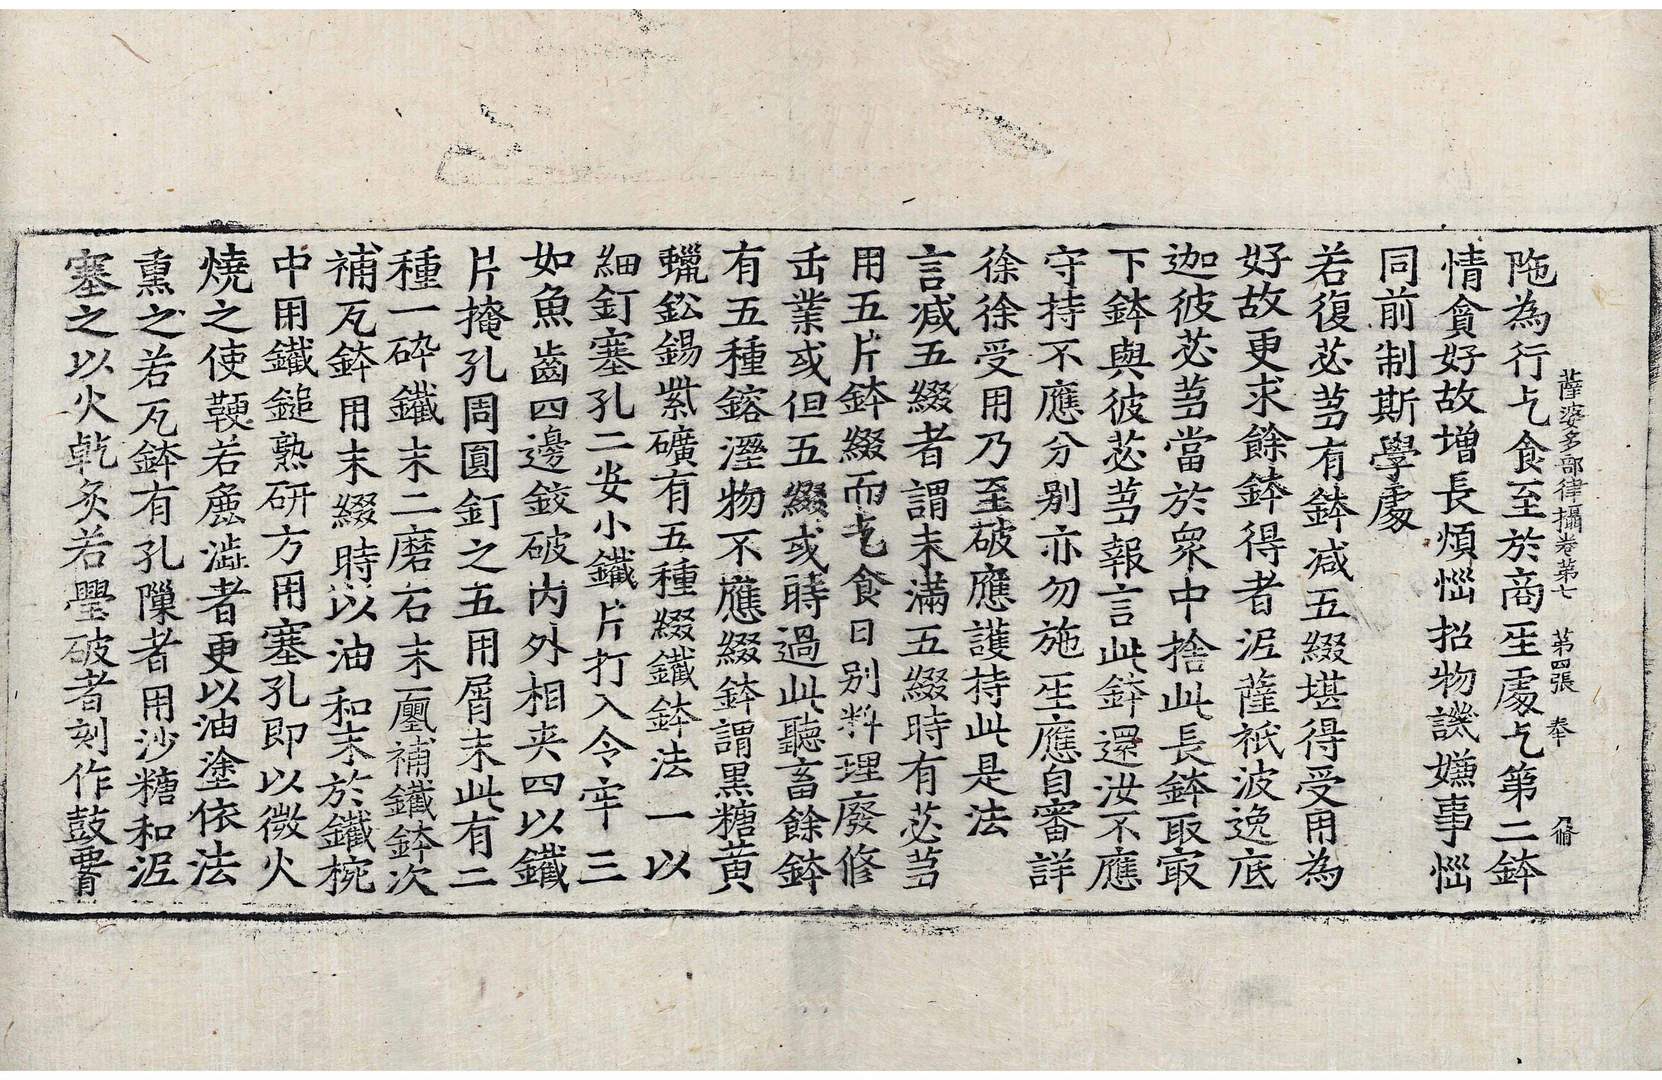 陁為行乞食至於商主處乞第二鉢
薩婆多部律攝卷第七 第四張 奉
情貪好故增長煩惱招物譏嫌事惱
同前制斯學處
若復苾芻有鉢減五綴堪得受用為
好故更求餘鉢得者泥薩祇波逸底
迦彼苾芻當於衆中捨此長鉢取㝡
下鉢與彼苾芻報言此鉢還汝不應
守持不應分別亦勿施主應自審詳
徐徐受用乃至破應護持此是法
言減五綴者謂未滿五綴時有苾芻
用五片鉢綴而乞食日別料理廢修
缶業或但五綴或時過此聽畜餘鉢
有五種鎔溼物不應綴鉢謂黑糖黃
蠟鈆錫紫礦有五種綴鐵鉢法一以
細釘塞孔二安小鐵片打入令牢三
如魚齒四邊鉸破內外相夾四以鐵
片掩孔周圓釘之五用屑末此有二
種一碎鐵末二磨石末㓕補鐵鉢次
補瓦鉢用末綴時以油和末於鐵椀
中用鐵鎚熟研方用塞孔即以微火
燒之使鞕若麁澁者更以油塗依法
熏之若瓦鉢有孔隟者用沙糖和泥
塞之以火乾炙若舋破者刻作鼓要